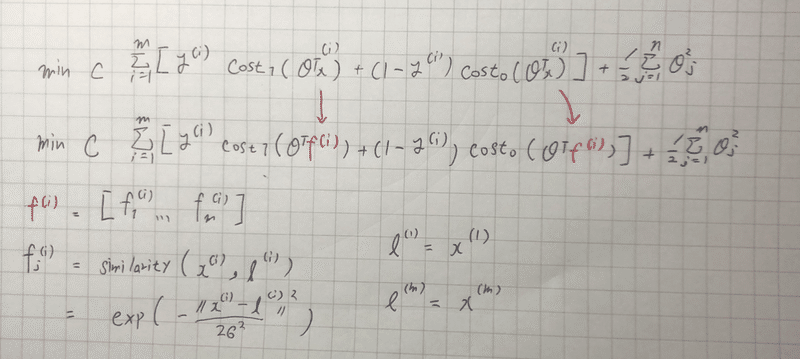 min C Σ_{i=1}^{m} [ y^{(i)} cost₁(θᵀx^{(i)}) + (1 − y^{(i)}) cost₀(θᵀx^{(i)}) ] + 1/2 Σ_{j=1}^{n} θ_j^2
↓ ↘
min C Σ_{i=1}^{m} [ y^{(i)} cost₁(θᵀf^{(i)}) + (1 − y^{(i)}) cost₀(θᵀf^{(i)}) ] + 1/2 Σ_{j=1}^{n} θ_j^2
f^{(i)} = [ f_1^{(i)} ... f_n^{(i)} ]
f_j^{(i)} = similarity ( x^{(i)}, l^{(i)} ) l^{(1)} = x^{(1)}
= exp( − ‖x^{(i)} − l^{(i)}‖^2 / 2σ^2 ) l^{(m)} = x^{(m)}